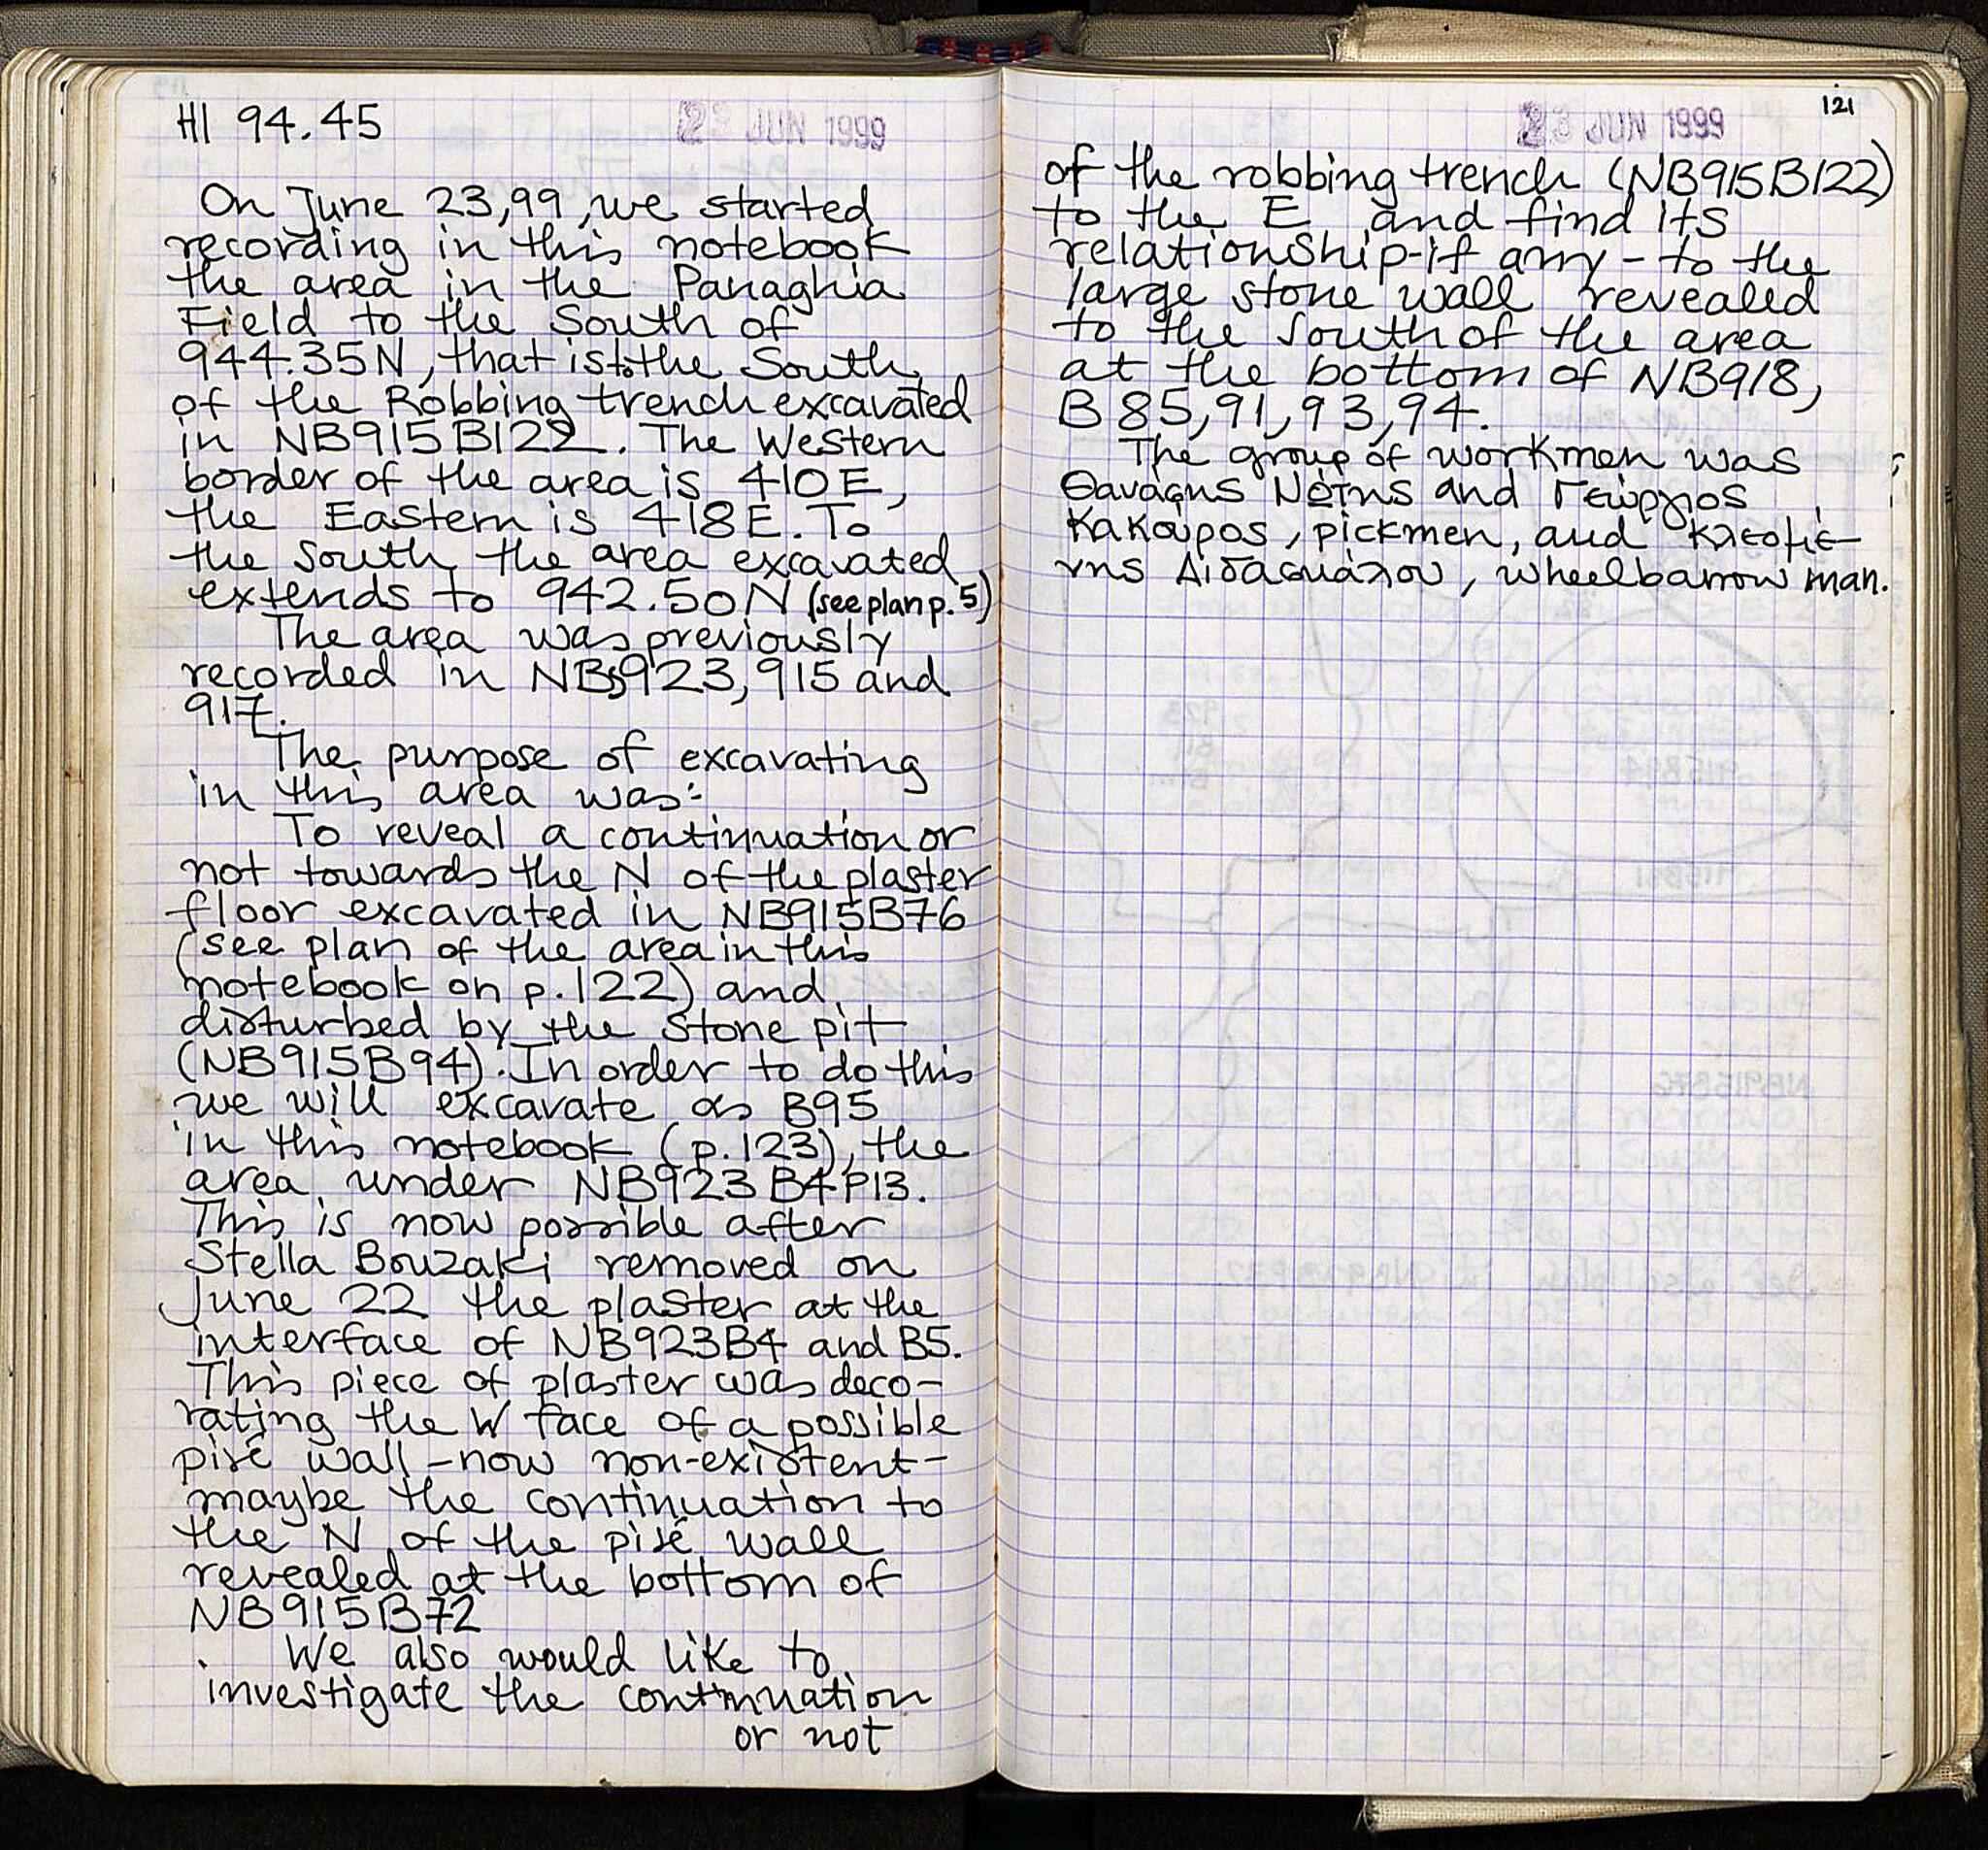 HI 94.45
23 JUN 1999
On June 23,99, we started
recording in this notebook
the area in the Panaghia
Field to the South of
944.35N, that is to the South
of the Robbing trench excavated
in NB915B122. The Western
border of the area is 410E,
the Eastern is 418E. To
the south the area excavated
extends to 942.50N (see plan p.5)
The area was previously
recorded in NBs923, 915 and
917.
The purpose of excavating
in this area was:
To reveal a continuation or
not towards the N of the plaster
floor excavated in NB915B76
(see plan of the area in this
notebook on p.122) and
disturbed by the stone pit
(NB915B94). In order to do this
we will excavate as B95
in this notebook (p.123), the
area under NB923 B4P13.
This is now possible after
Stella Bouzaki removed on
June 22 the plaster at the
interface of NB923B4 and B5.
This piece of plaster was deco-
rating the W face of a possible
pisé wall -now non-existent-
maybe the continuation to
the N of the pisé wall
revealed at the bottom of
NB915B72
. We also would like to
investigate the continuation
or not
23 JUN 1999
121
of the robbing trench (NB915B122)
to the E, and find its
relationship-if any- to the
large stone wall revealed
to the south of the area
at the bottom of NB918,
B 85,91,93,94.
The group of workmen was
Θανάσης Νώτης and Γεώργιος
Κακούρος, pickmen, and Κλεομέ-
νης Διδασκάλου, wheelbarrow man.